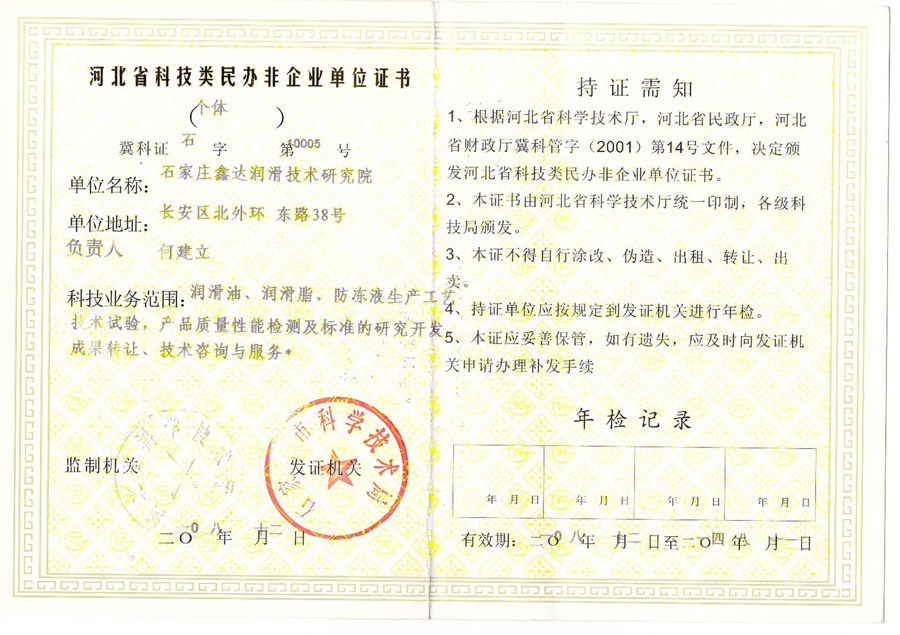 河北省科技类民办非企业单位证书
(个体)
冀科证 石 字 第10005 号
单位名称：石家庄鑫达润滑技术研究院
单位地址：长安区北外环 东路38号
负责人 何建立
科技业务范围：润滑油、润滑脂、防冻液生产工艺
技术试验，产品质量性能检测及标准的研究开发
成果转让、技术咨询与服务*
监制机关
发证机关
石家庄市科学技术局
二〇 年 月 日
持证需知
1、根据河北省科学技术厅，河北省民政厅，河北
省财政厅冀科管字（2001）第14号文件，决定颁
发河北省科技类民办非企业单位证书。
2、本证书由河北省科学技术厅统一印制，各级科
技局颁发。
3、本证不得自行涂改、伪造、出租、转让、出
卖。
4、持证单位应按规定到发证机关进行年检。
5、本证应妥善保管，如有遗失，应及时向发证机
关申请办理补发手续
年检记录
年 月 日 年 月 日 年 月 日 年 月 日
有效期：二〇 年 月 日至二〇 年 月 日